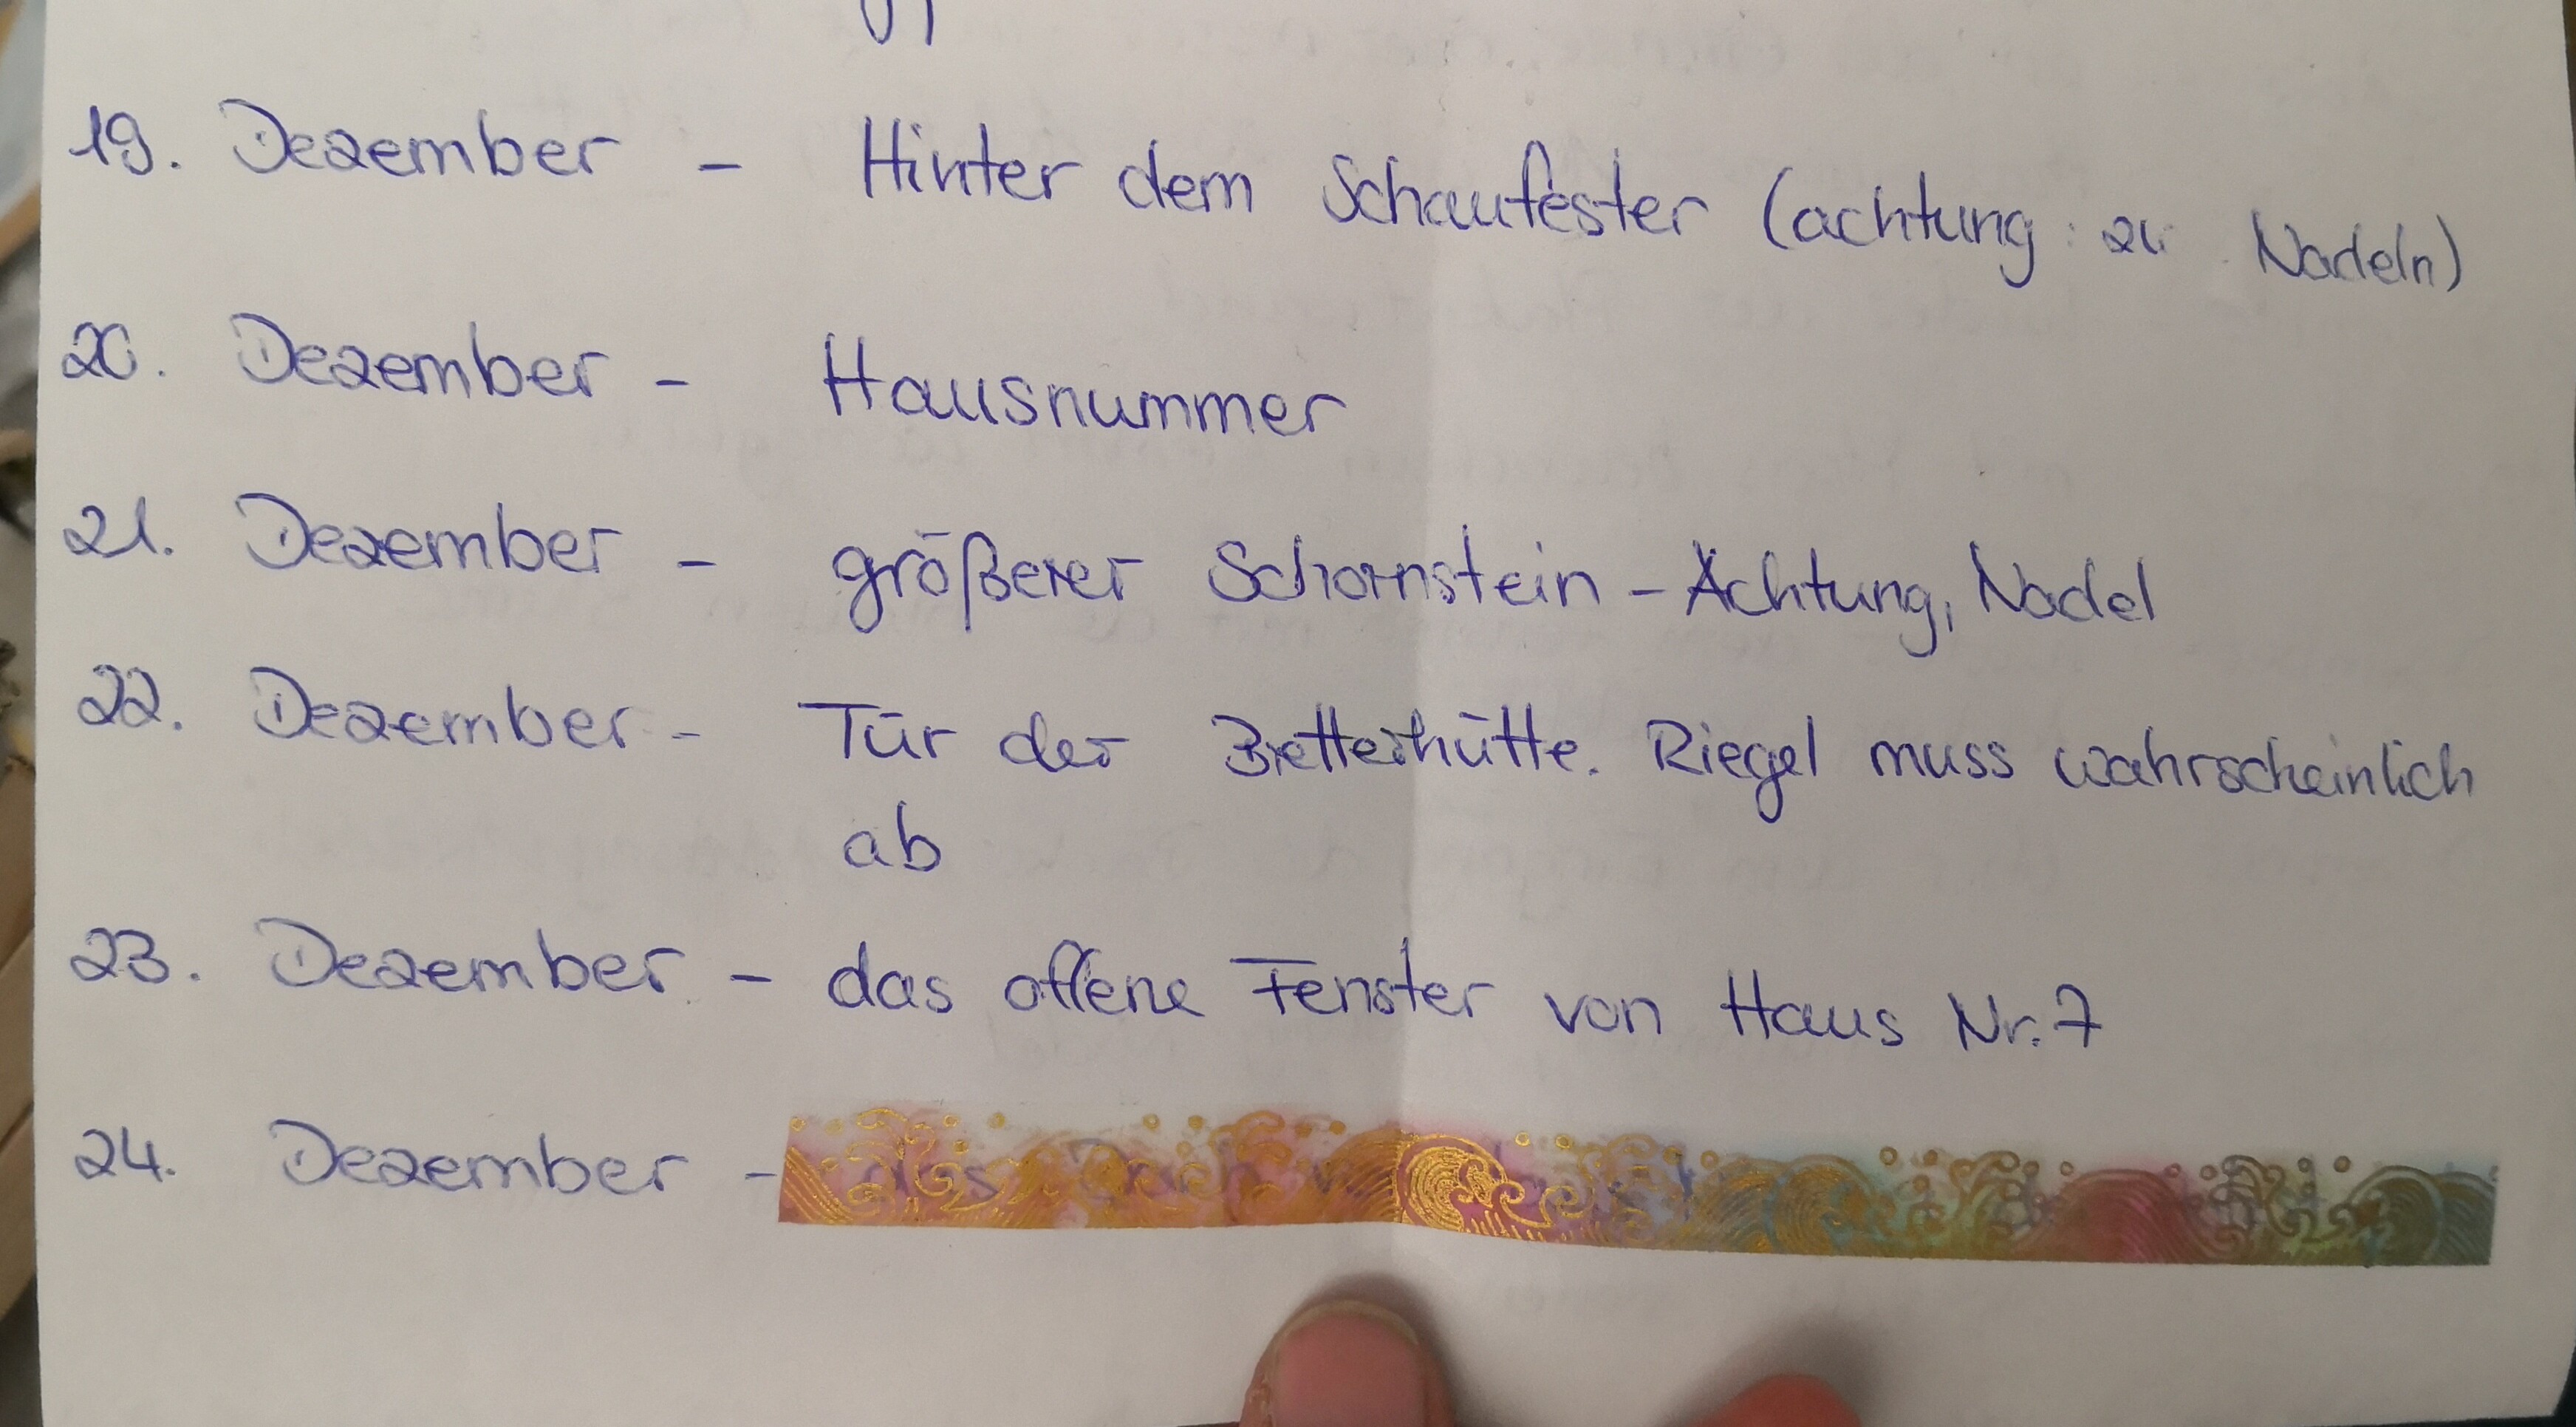 19. Dezember - Hinter dem Schaufester (achtung: 2x Nadeln)
20. Dezember - Hausnummer
21. Dezember - größerer Schornstein - Achtung, Nadel
22. Dezember - Tür der Bretterhütte. Riegel muss wahrscheinlich
ab
23. Dezember - das offene Fenster von Haus Nr. 7
24. Dezember - das Dach